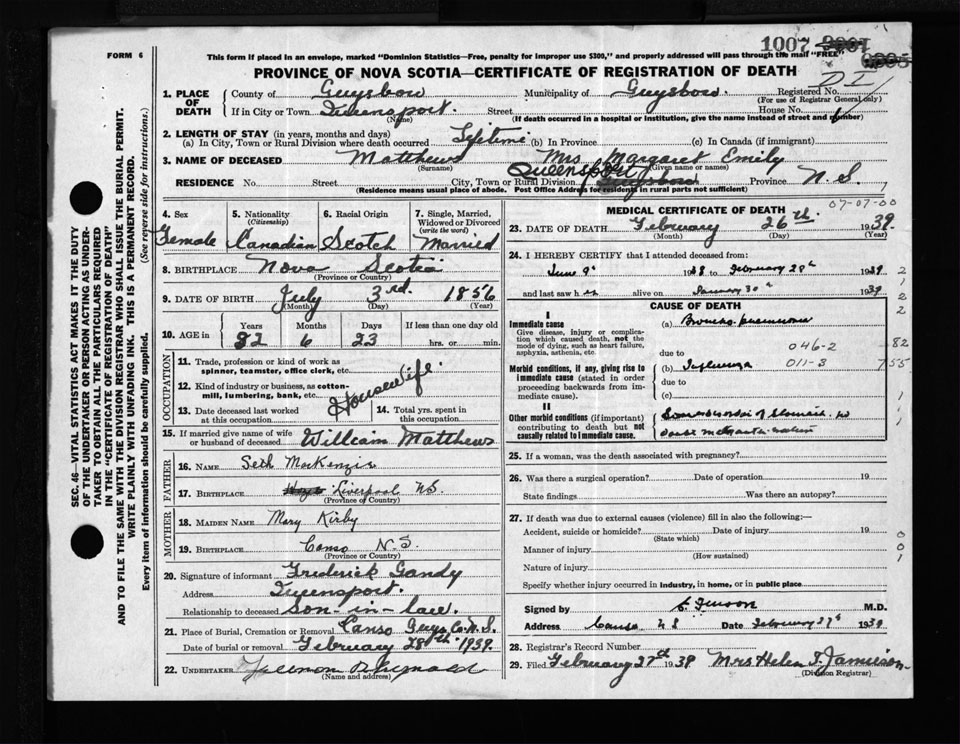 1007 0001
FORM 6
This form if placed in an envelope, marked "Dominion Statistics—Free, penalty for improper use $300," and properly addressed will pass through the mail "FREE"
0005
PROVINCE OF NOVA SCOTIA—CERTIFICATE OF REGISTRATION OF DEATH
D I
1. PLACE OF DEATH County of Guysboro Municipality of Guysboro. Registered No.
(For use of Registrar General only)
If in City or Town Queensport. Street House No.
(Name) (If death occurred in a hospital or institution, give the name instead of street and number)
2. LENGTH OF STAY (in years, months and days)
(a) In City, Town or Rural Division where death occurred Lifetime (b) In Province (c) In Canada (if immigrant)
3. NAME OF DECEASED Matthews Mrs Margaret Emily
(Surname) (Given name or names)
Queensport
RESIDENCE No. Street City, Town or Rural Division Guysboro Province N.S.
(Residence means usual place of abode. Post Office Address for residents in rural parts not sufficient)
SEC. 46—VITAL STATISTICS ACT MAKES IT THE DUTY
OF THE UNDERTAKER OR PERSON ACTING AS UNDER-
TAKER TO OBTAIN ALL THE PARTICULARS REQUIRED
IN THE "CERTIFICATE OF REGISTRATION OF DEATH"
AND TO FILE THE SAME WITH THE DIVISION REGISTRAR WHO SHALL ISSUE THE BURIAL PERMIT.
WRITE PLAINLY WITH UNFADING INK. THIS IS A PERMANENT RECORD.
Every item of information should be carefully supplied. (See reverse side for instructions.)
4. Sex 5. Nationality (Citizenship) 6. Racial Origin 7. Single, Married, Widowed or Divorced (write the word)
Female Canadian Scotch Married
8. BIRTHPLACE Nova Scotia
(Province or Country)
9. DATE OF BIRTH July 3rd. 1856
(Month) (Day) (Year)
10. AGE in Years Months Days If less than one day old
82 6 23 hrs. or min.
OCCUPATION
11. Trade, profession or kind of work as
spinner, teamster, office clerk, etc.
12. Kind of industry or business, as cotton-
mill, lumbering, bank, etc.
Housewife.
13. Date deceased last worked
at this occupation
14. Total yrs. spent in
this occupation
15. If married give name of wife
or husband of deceased William Matthews
FATHER
16. NAME Seth MacKenzie
17. BIRTHPLACE Liverpool NS.
(Province of Country)
MOTHER
18. MAIDEN NAME Mary Kirby
19. BIRTHPLACE Canso N.S.
(Province or Country)
20. Signature of informant Frederick Gandy
Address Queensport.
Relationship to deceased son-in-law.
21. Place of Burial, Cremation or Removal Canso Guys Co. N.S.
Date of burial or removal February 28th 1939.
22. UNDERTAKER
(Name and address)
MEDICAL CERTIFICATE OF DEATH 07-07-00
23. DATE OF DEATH February 26th. 1939.
(Month) (Day) (Year)
24. I HEREBY CERTIFY that I attended deceased from:
June 9th 1938 to February 28th 1939
and last saw h er alive on January 30th 1939
2
1
2
2
CAUSE OF DEATH
I
Immediate cause
Give disease, injury or complica-
tion which caused death, not the
mode of dying, such as heart failure,
asphyxia, asthenia, etc.
(a) Broncho pneumonia
due to 046-2 82
Morbid conditions, if any, giving rise to
immediate cause (stated in order
proceeding backwards from im-
mediate cause).
(b) Influenza 011-3 755
due to
(c)
II
Other morbid conditions (if important)
contributing to death but not
causally related to Immediate cause.
1
1
1
25. If a woman, was the death associated with pregnancy?
26. Was there a surgical operation? Date of operation 19
State findings Was there an autopsy?
27. If death was due to external causes (violence) fill in also the following:—
Accident, suicide or homicide? Date of injury 19
(State which)
Manner of injury
(How sustained)
Nature of injury
Specify whether injury occurred in industry, in home, or in public place
0
0
1
Signed by M.D.
Address Canso N S Date February 27th 1939
28. Registrar's Record Number
29. Filed February 27th 1939 Mrs Helen J. Jamieson
(Division Registrar)